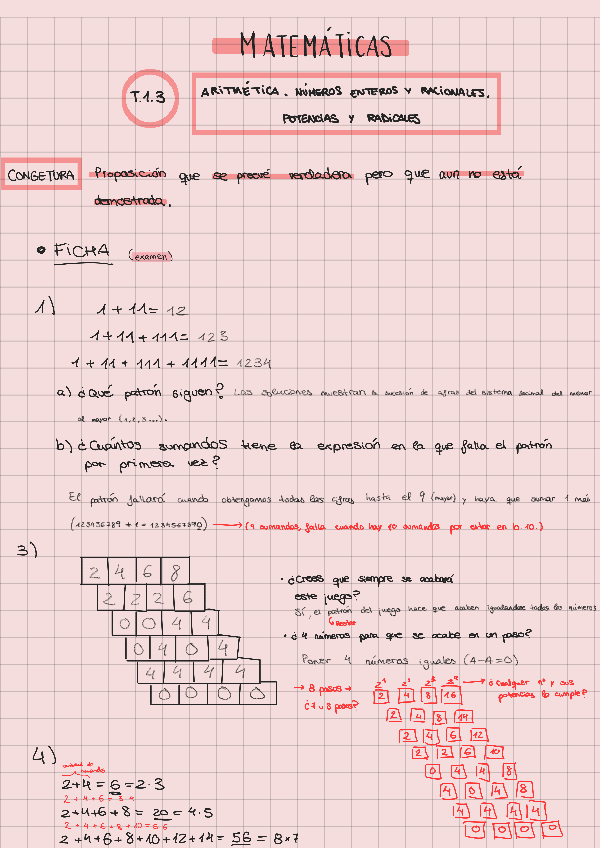 MATEMÁTICAS
T.1.3
ARITMÉTICA. NÚMEROS ENTEROS Y RACIONALES.
POTENCIAS Y RADICALES
CONGETURA Proposición que se preveé verdadera pero que aun no está
demostrada.
• FICHA (examen)
1) 1 + 11 = 12
1 + 11 + 111 = 123
1 + 11 + 111 + 1111 = 1234
a) ¿Qué patrón siguen? Las soluciones muestran la sucesión de cifras del sistema decimal del menor
al mayor (1,2,3...).
b) ¿Cuántos sumandos tiene la expresión en la que falla el patrón
por primera vez?
El patrón fallará cuando obtengamos todas las cifras hasta el 9 (mayor) y haya que sumar 1 más
(123456789 + 1 = 1234567890) → (9 sumandos, falla cuando hay 10 sumandos por estar en b.10.)
3)
2 4 6 8
2 2 2 6
0 0 4 4
0 4 0 4
4 4 4 4
0 0 0 0
• ¿Crees que siempre se acabará
este juego?
Sí, el patrón del juego hace que acaben igualandose todos los números
6 Restas
• ¿4 números para que se acabe en un paso?
Poner 4 números iguales (A-A=0)
→ 8 pasos →
¿7 u 8 pasos?
2¹ 2² 2³ 2⁴ → ¿Cualquier nº y sus
potencias lo cumple?
2 4 8 16
2 4 8 14
2 4 6 12
2 2 6 10
0 4 4 8
4 0 4 8
4 4 4 4
0 0 0 0
4)
2+4 = 6 = 2·3
2+4+6 = 3·4
2+4+6+8 = 20 = 4·5
2+4+6+8+10 = 5·6
2+4+6+8+10+12+14 = 56 = 8×7